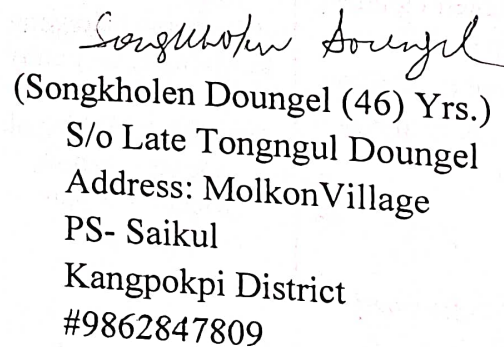 Songkholen Doungel
(Songkholen Doungel (46) Yrs.)
S/o Late Tongngul Doungel
Address: MolkonVillage
PS- Saikul
Kangpokpi District
#9862847809